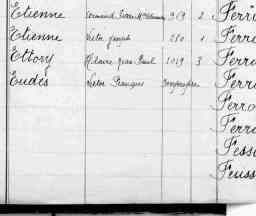 Etienne 319 2 Ferri
Etienne Victor Joseph 250 1 Ferr
Ettory Hilaire Jean Paul 1019 3 Ferr
Eudes Victor François Ferr
Ferro
Ferr
Fess
Feuss